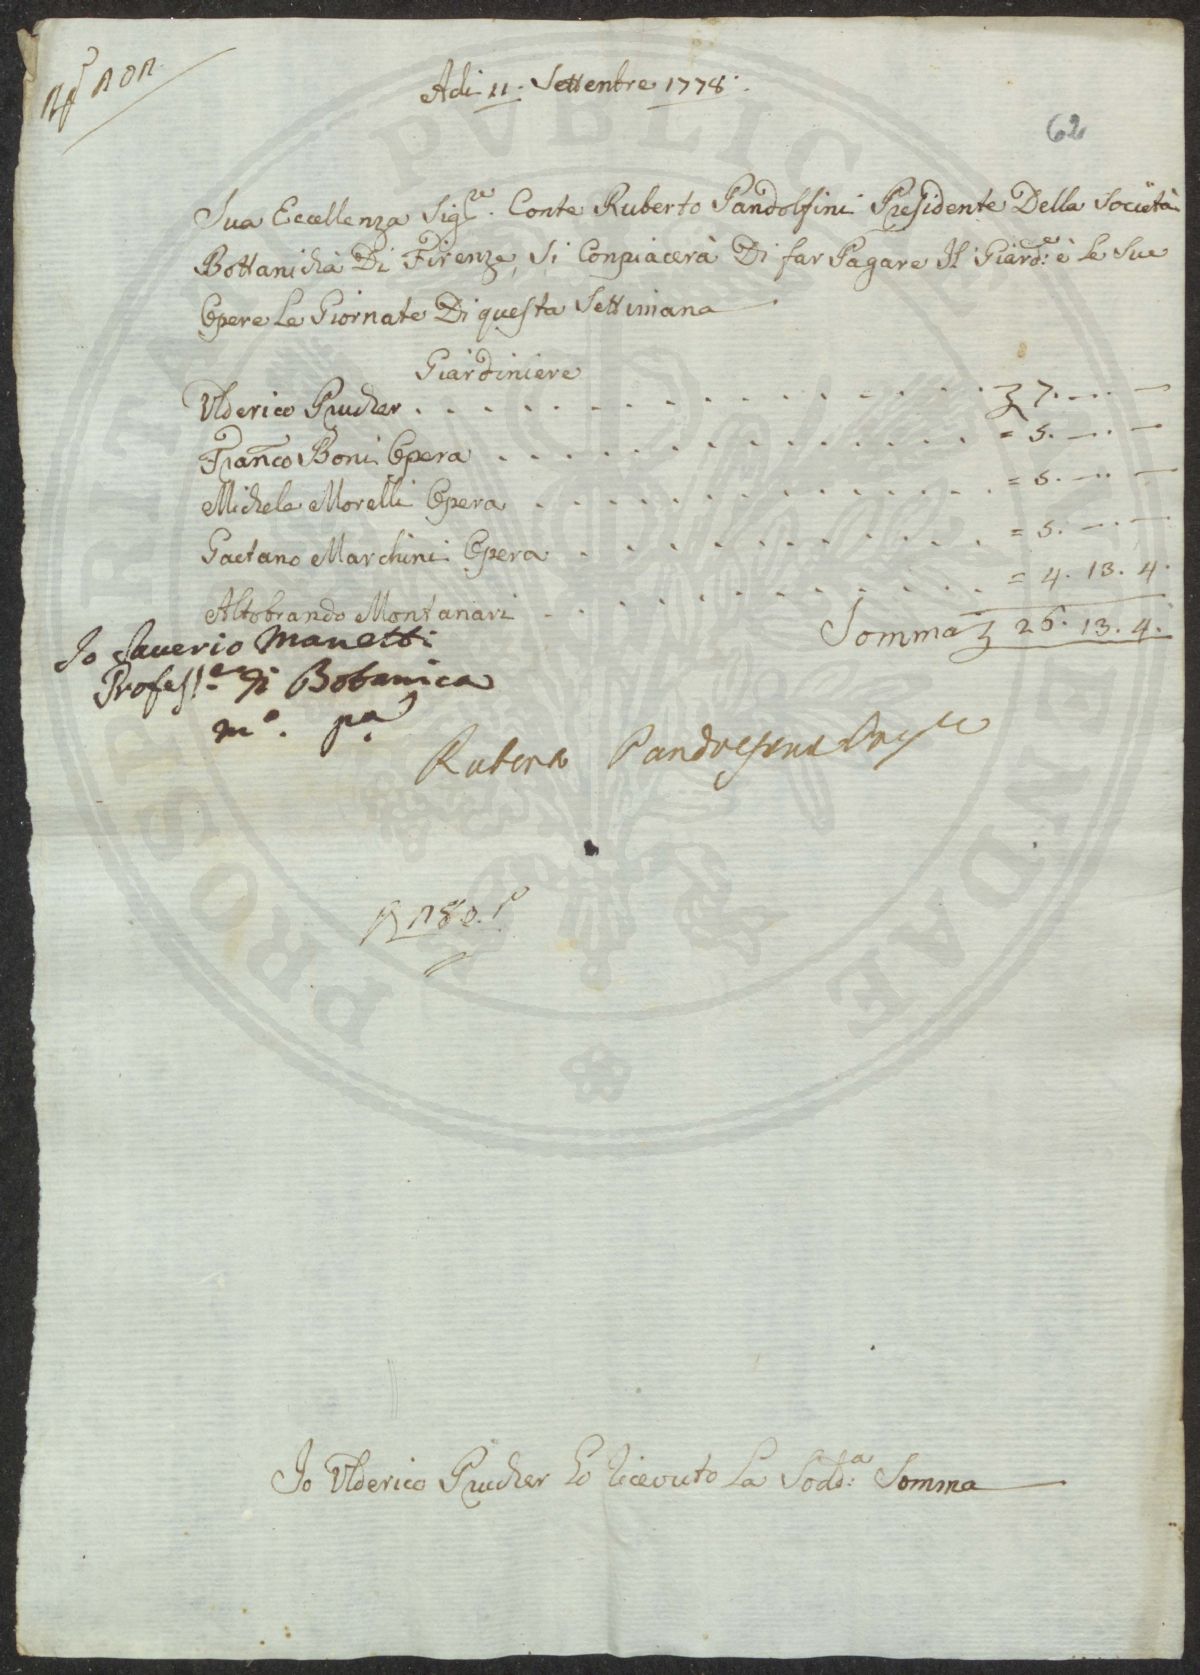 Adi 11. Settenbre 1778.
62
Sua Eccellenza Sig.re Conte Ruberto Pandolfini Presidente Della Società
Bottanicha Di Firenze, Si Conpiacerà Di far Pagare Il Giard.e è Le Sue
Opere Le Giornate Di questa Settimana
Giardiniere
Ulderico Prucher . . . 7. — . —
Franco Boni Opera . . . = 5. — . —
Michele Morelli Opera . . . = 5. — . —
Gaetano Marchini Opera . . . = 5. — . —
Altobrando Montanari . . . = 4. 13. 4.
Somma 26. 13. 4.
Io Saverio Manetti
Profess.e di Botanica
m.o p.a
Ruberto Pandolfini
Io Ulderico Prucher ho ricevuto La Sodd.a Somma
PROSPERITATI PVBLICAE AVGENDAE